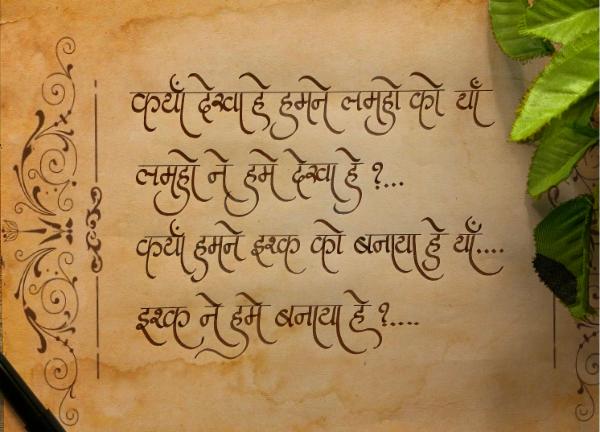 कयाँ देखा हे हमने लमहो को याँ
लमहो ने हमे देखा हे ?...
कयाँ हमने इश्क को बनाया हे याँ....
इश्क ने हमे बनाया हे ?....